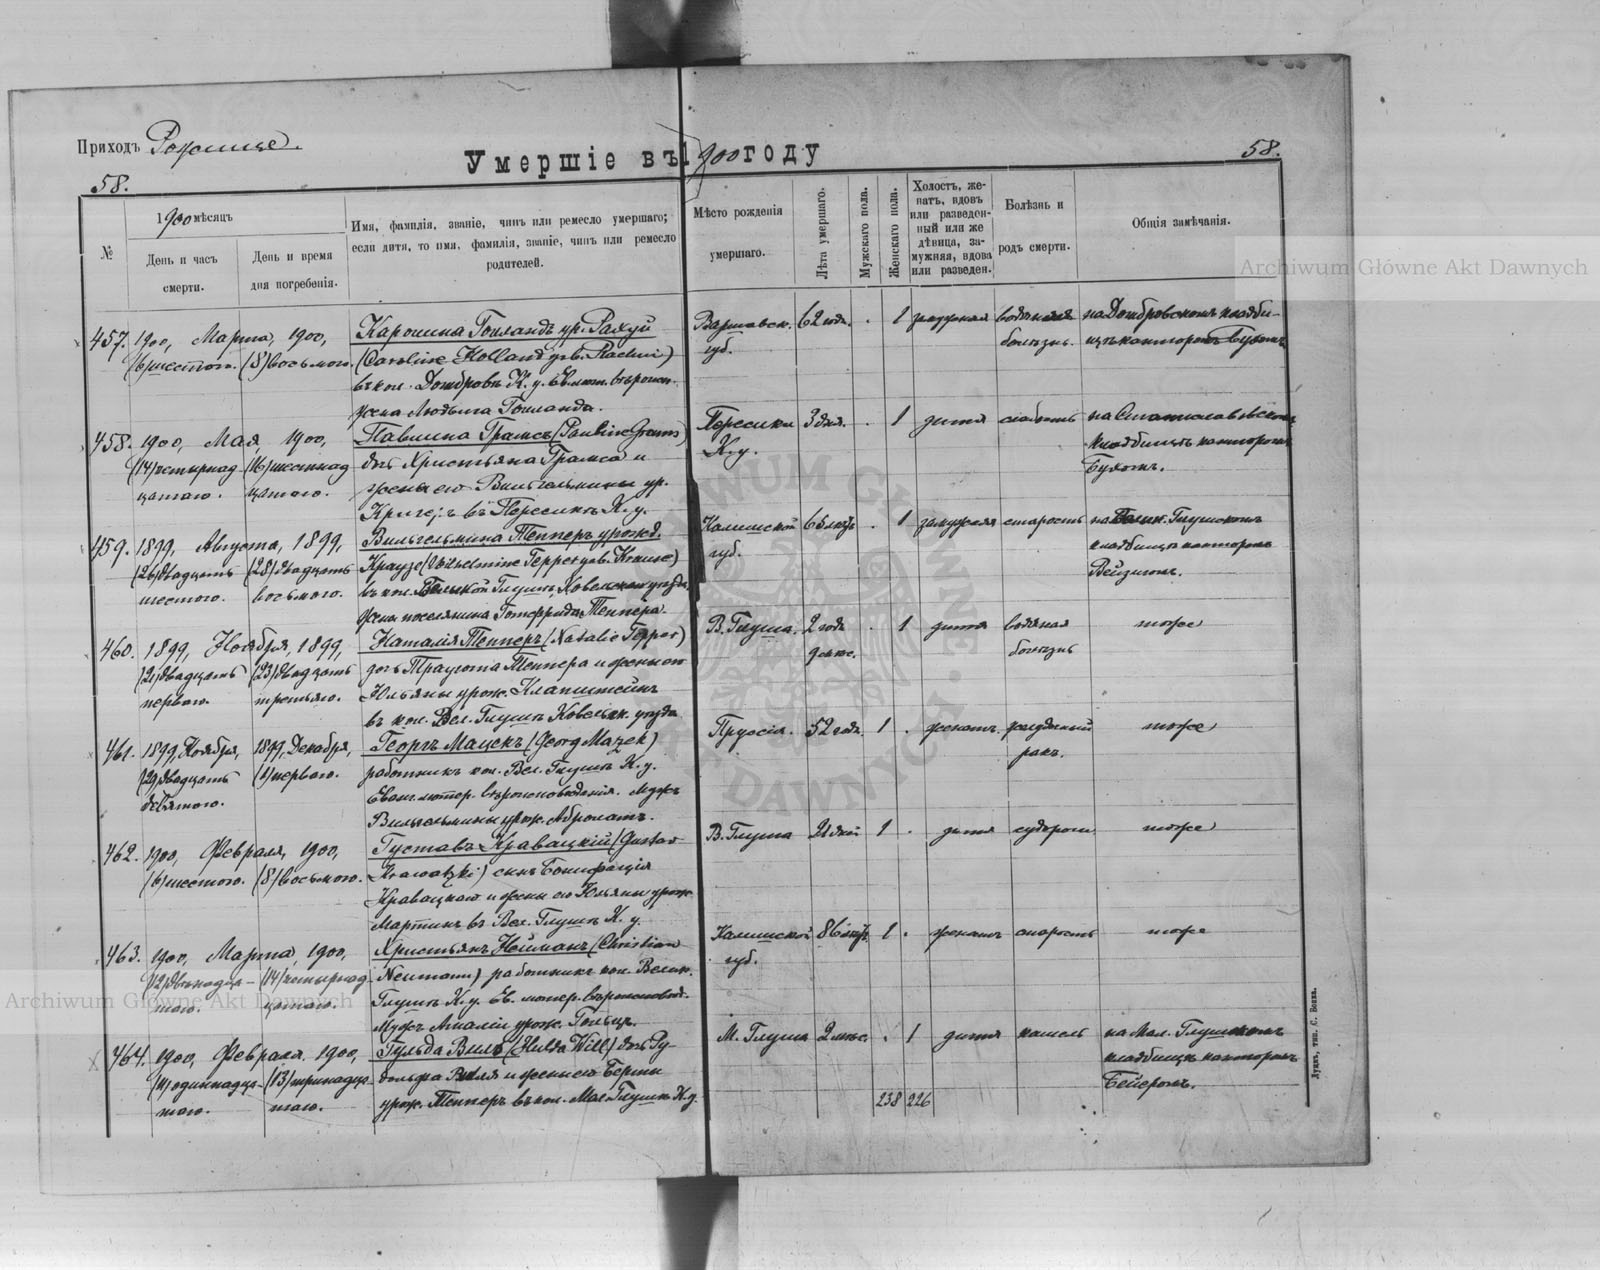 Приходъ Рожище.
Умершіе въ 1900 году
58.
58.
№
1900 мѣсяцъ
День и часъ смерти.
День и время дня погребенія.
Имя, фамилія, званіе, чинъ или ремесло умершаго;
если дитя, то имя, фамилія, званіе, чинъ или ремесло
родителей.
Мѣсто рожденія
умершаго.
Лѣта умершаго.
Мужскаго пола.
Женскаго пола.
Холостъ, же-
натъ, вдовъ
или разведен-
ный или же
дѣвица, за-
мужняя, вдова
или разведен.
Болѣзнь и
родъ смерти.
Общія замѣчанія.
457. 1900, Марта, 1900,
(6) шестого. (8) восьмого.
Каролина Голландъ ур. Рахуй
(Caroline Holland geb. Rachui)
въ кол. Домбровъ К. у. Ев. лют. вѣроисп.
жена Людвига Голланда.
Варшавск.
губ.
62 года. . 1 замужняя водяная
болѣзнь.
на Домбровскомъ кладби-
щѣ канторомъ Бухомъ
458. 1900, Мая, 1900,
(14) четырнад- (16) шестнад
цатаго. цатаго.
Павлина Грамсъ (Pauline Grams)
дочь Христьяна Грамса и
жены его Вильгельмины ур.
Кригеръ въ Пересикѣ К. у.
Пересика
К. у.
3 дня. . 1 дитя слабость
на Станиславовскомъ
кладбищѣ канторомъ
Бухомъ.
459. 1899, Августа, 1899,
(26) двадцать (28) двадцать
шестого. восьмого.
Вильгельмина Тепперъ урожд.
Краузе (Wilhelmine Tepper geb. Krause)
въ кол. Великой Глушѣ, Ковельскаго уѣзда,
жена поселянина Готфрида Теппера.
Калишской
губ.
65 лѣтъ . 1 замужняя старость
на Велик. Глушскомъ
кладбищѣ канторомъ
Вейзигомъ.
460. 1899, Ноября, 1899,
(21) двадцать (23) двадцать
перваго. третьяго.
Наталія Тепперъ (Natalie Tepper)
дочь Траугота Теппера и жены его
Юльяны урож. Клапштейнъ
въ кол. Вел. Глушѣ Ковельск. уѣзда
В. Глуша. 2 года
9 мѣс.
. 1 дитя водяная
болѣзнь
тоже
461. 1899, Ноября, 1899, Декабря,
(29) двадцать (1) перваго.
девятаго.
Георгъ Мацекъ (Georg Mazek)
работникъ кол. Вел. Глушѣ К. у.
Еванг. лютер. вѣроисповѣданія. Мужъ
Вильгельмины урож. Абромать.
Пруссія. 52 года. 1 . женатъ. желудочный
ракъ.
тоже
462. 1900, Февраля, 1900,
(6) шестого. (8) восьмого.
Густавъ Кравацкій (Gustav
Krawatzki) сынъ Бонифація
Кравацкаго и жены его Юльяны урож.
Мартинъ въ Вел. Глушѣ К. у.
В. Глуша 21 дней 1 . дитя судороги тоже
463. 1900, Марта, 1900,
(12) двѣнадца- (14) четырнад-
таго. цатаго.
Христьянъ Нейманъ (Christian
Neumann) работникъ кол. Велик.
Глушѣ К. у. Ев. лютер. вѣроисповѣд.
Мужъ Амаліи урож. Гольцъ.
Калишской
губ.
86 лѣтъ. 1 . женатъ старость тоже
464. 1900, Февраля, 1900,
(11) одиннадца- (13) тринадца-
таго. таго.
Гульда Виль (Hulda Will) дочь Ру-
дольфа Виля и жены его Берты
урож. Тепперъ въ кол. Мал. Глушѣ К. у.
М. Глуша 2 мѣс. . 1 дитя кашель
на Мал. Глушскомъ
кладбищѣ канторомъ
Бейеромъ.
238 226
Луцкъ, тип. С. Бонка.
Archiwum Główne Akt Dawnych
Archiwum Główne Akt Dawnych
ARCHIWUM GŁÓWNE AKT DAWNYCH